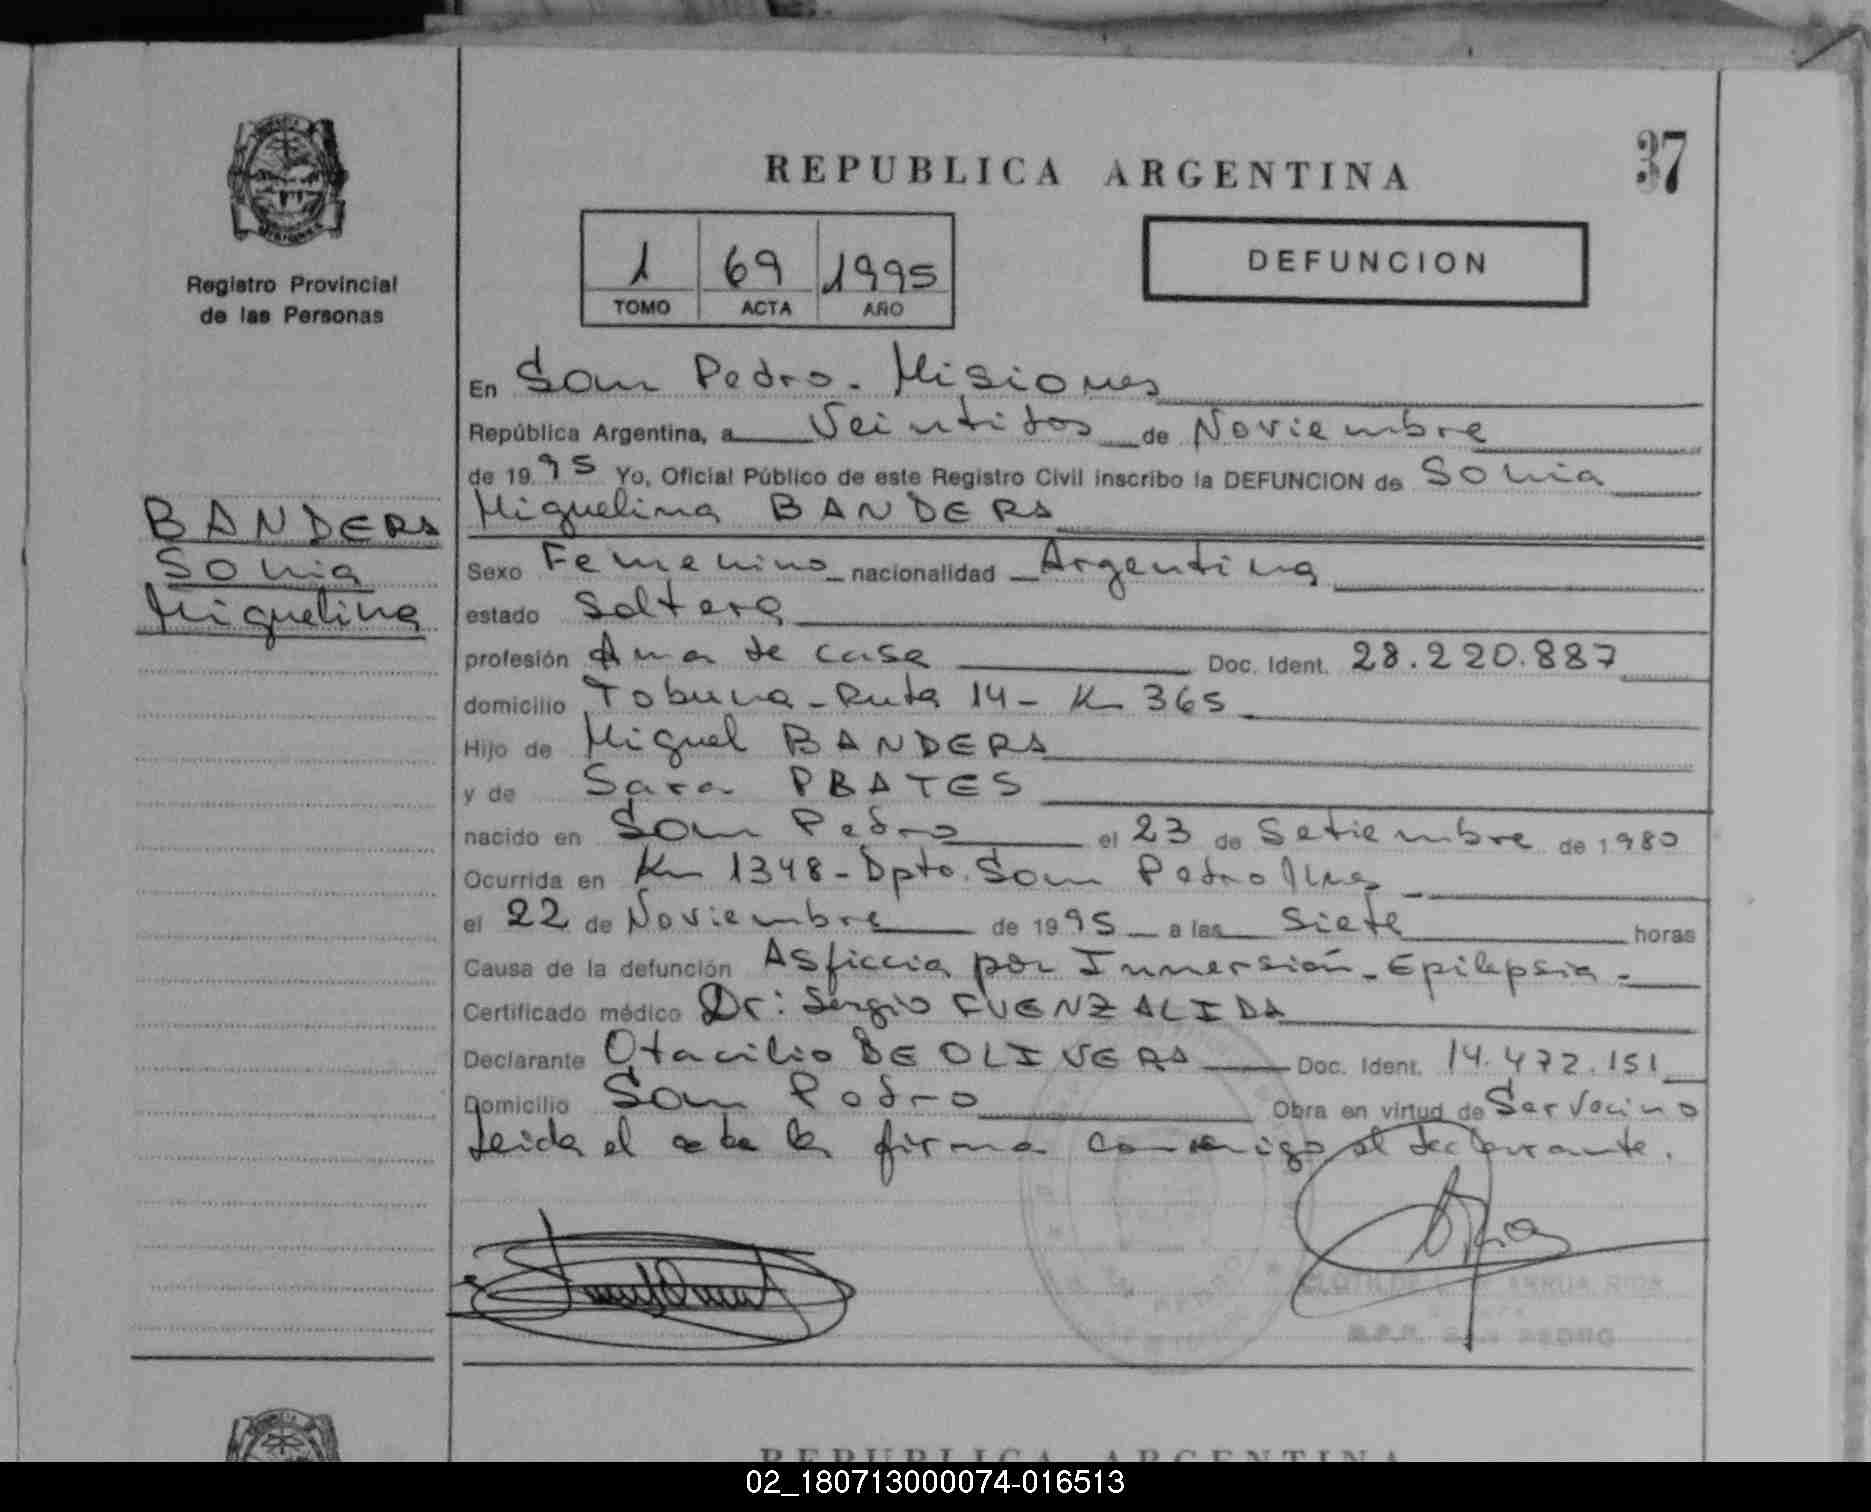 37
REPUBLICA ARGENTINA
Registro Provincial
de las Personas
1 69 1995
TOMO ACTA AÑO
DEFUNCION
En San Pedro - Misiones
República Argentina, a Veintidos de Noviembre
de 1995 Yo, Oficial Público de este Registro Civil inscribo la DEFUNCION de Sonia
Miguelina BANDERA
BANDERA
Sonia
Miguelina
Sexo Femenino nacionalidad Argentina
estado Soltera
profesión Ama de casa Doc. Ident. 28.220.887
domicilio Tobuna - Ruta 14 - Km 365
Hijo de Miguel BANDERA
y de Sara PRATES
nacido en San Pedro el 23 de Setiembre de 1980
Ocurrida en Km 1348 - Dpto. San Pedro Mnes
el 22 de Noviembre de 1995 a las Siete horas
Causa de la defunción Asficcia por Inmersión - Epilepsia -
Certificado médico Dr: Sergio FUENZALIDA
Declarante Otacilio DE OLIVERA Doc. Ident. 14.472.151
Domicilio San Pedro Obra en virtud de Ser Vecino
Leida el acta la firma conmigo el declarante.
R.P.P. SAN PEDRO
REPUBLICA ARGENTINA
02_180713000074-016513